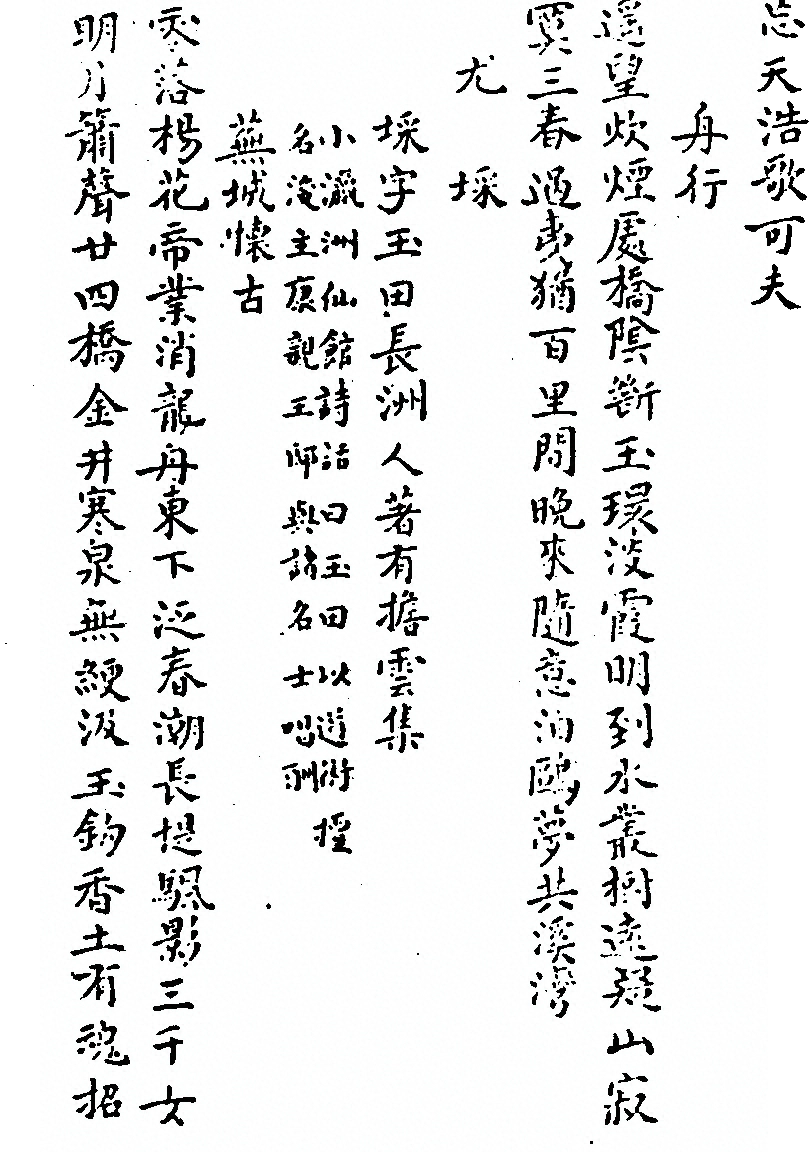 忘天浩歌可夫
舟行
遥望炊煙處橋陰斷玉環波霞明到水叢樹遠疑山寂
寞三春過夷猶百里間晚來隨意泊鷗夢共溪灣
尤 埰
埰字玉田長洲人著有擔雲集
小瀛洲仙館詩話曰玉田以遊術擅
名淹主康親王邸與諸名士唱酬
蕪城懷古
零落楊花帝業消龍舟東下泛春潮長堤颿影三千女
明月簫聲廿四橋金井寒泉無綆汲玉鉤香土有魂招